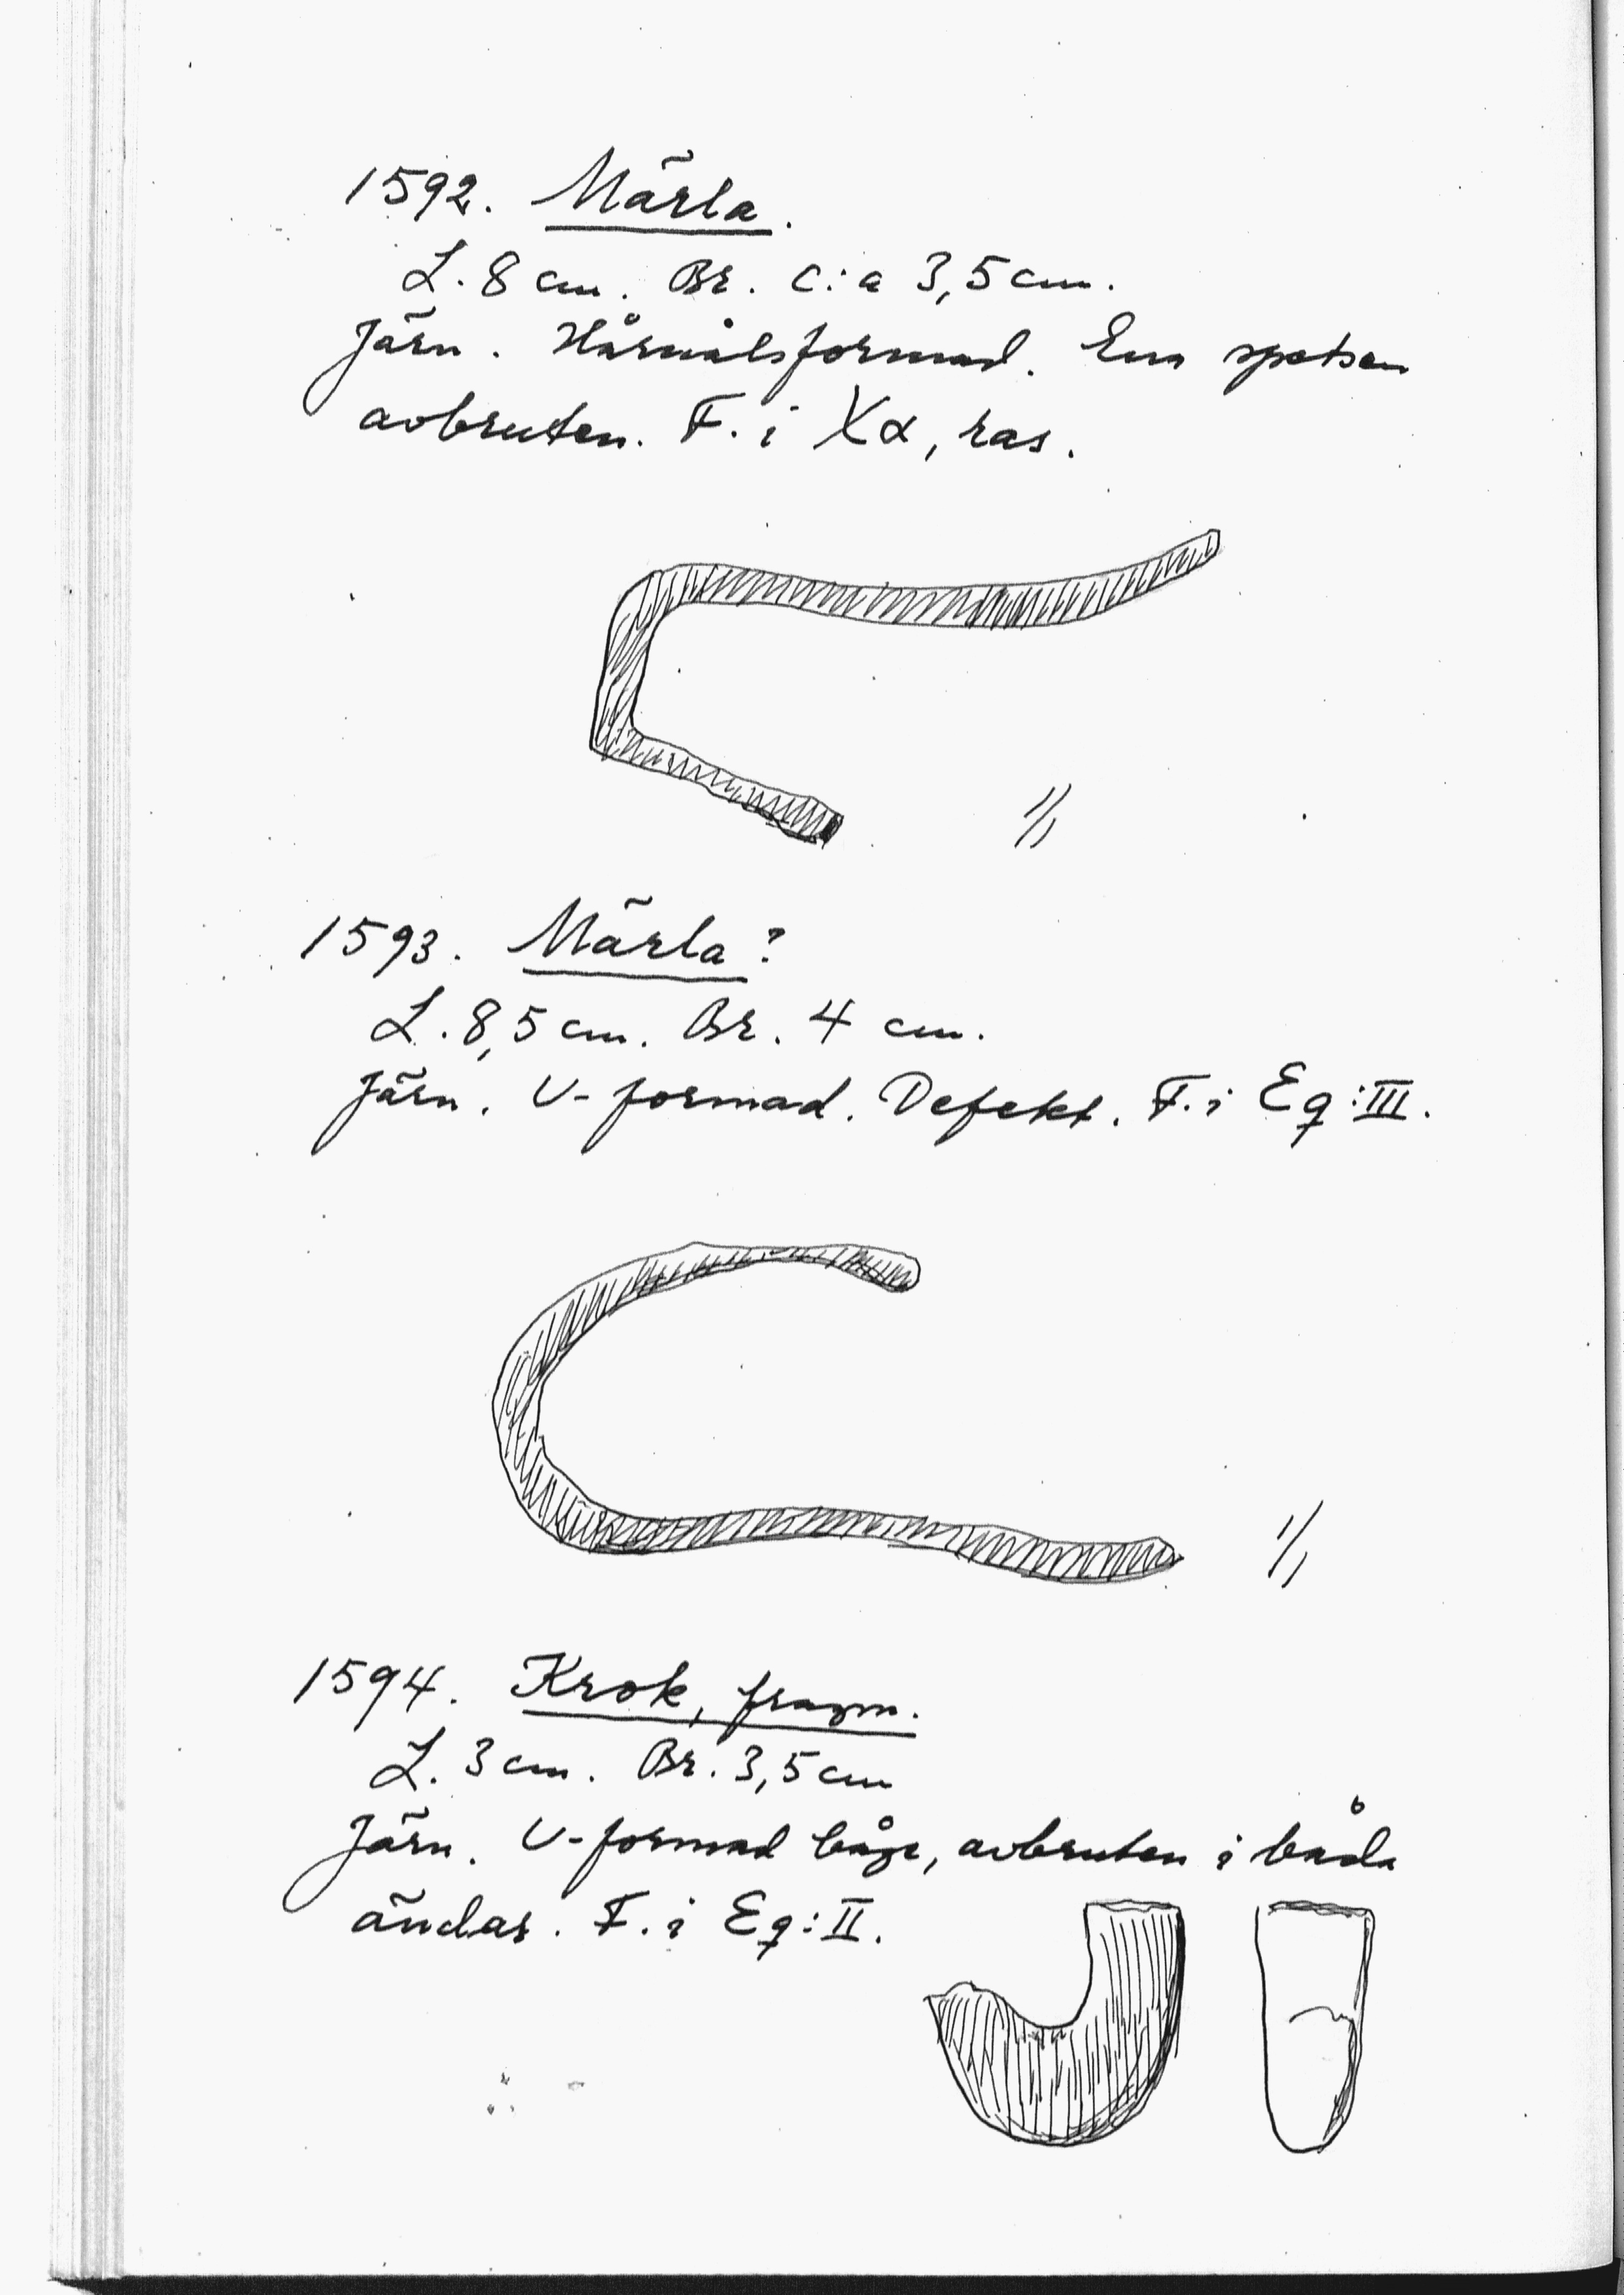 1592. Märla.
L. 8 cm. Br. c:a 3,5 cm.
Järn. Hårnålsformad. Ena spetsen
avbruten. F. i Xα, ras.
1/1
1593. Märla?
L. 8,5 cm. Br. 4 cm.
Järn. U-formad. Defekt. F. i Eq:III.
1/1
1594. Krok, fragm.
L. 3 cm. Br. 3,5 cm
Järn. U-formad båge, avbruten i båda
ändar. F. i Eq:II.